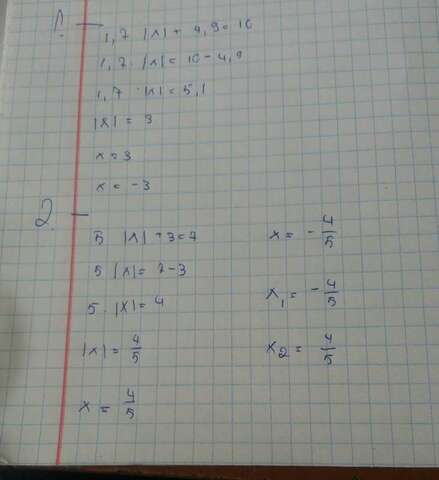 1.
1,7 · |x| + 4,9 = 10
1,7 · |x| = 10 - 4,9
1,7 · |x| = 5,1
|x| = 3
x = 3
x = -3
2.
5 |x| + 3 = 7
5 |x| = 7 - 3
5 · |x| = 4
|x| = 4/5
x = 4/5
x = - 4/5
x₁ = - 4/5
x₂ = 4/5